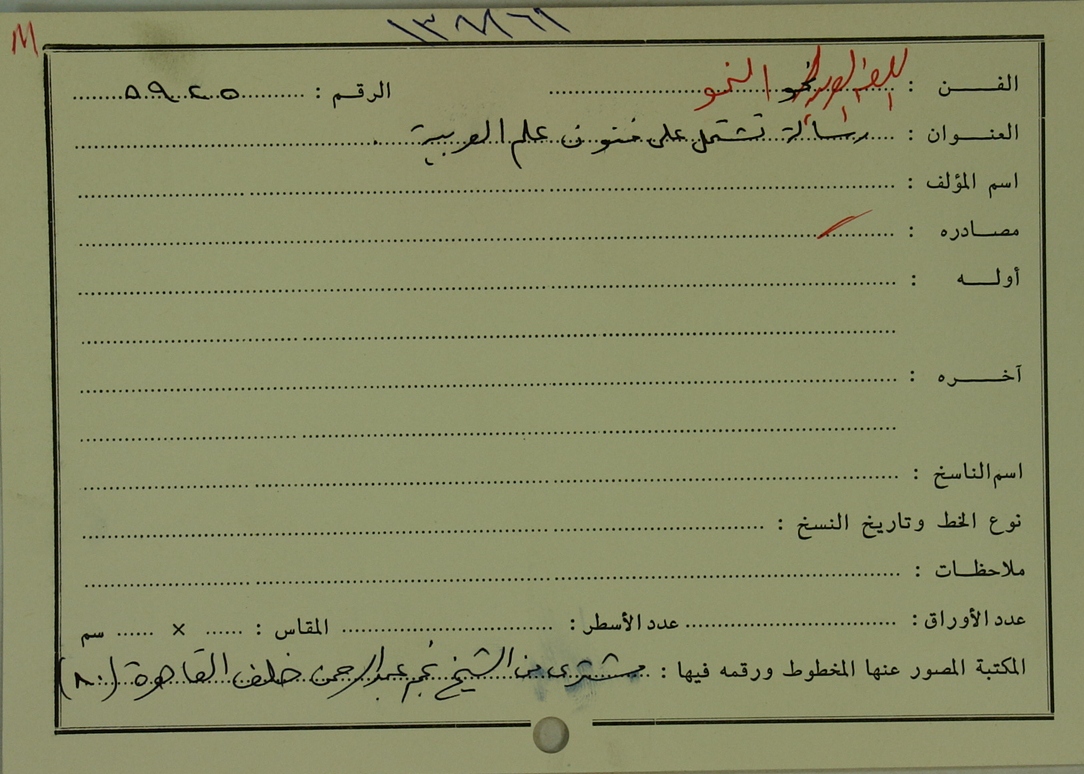 ١٣٨٨٦٩
الفــن : نحو اللغة العربية النحو الرقم : ٥٩٤٥
العنـوان : رسالة تشتمل على فنون علم العربية
اسم المؤلف :
مصـادره :
أولـــه :
آخــره :
اسم الناسخ :
نوع الخط وتاريخ النسخ :
ملاحظـات :
عدد الأوراق : عدد الأسطر : المقاس : × سم
المكتبة المصور عنها المخطوط ورقمه فيها : مشترى من الشيخ نجم عبدالرحمن خلف القاهرة (٨٠)